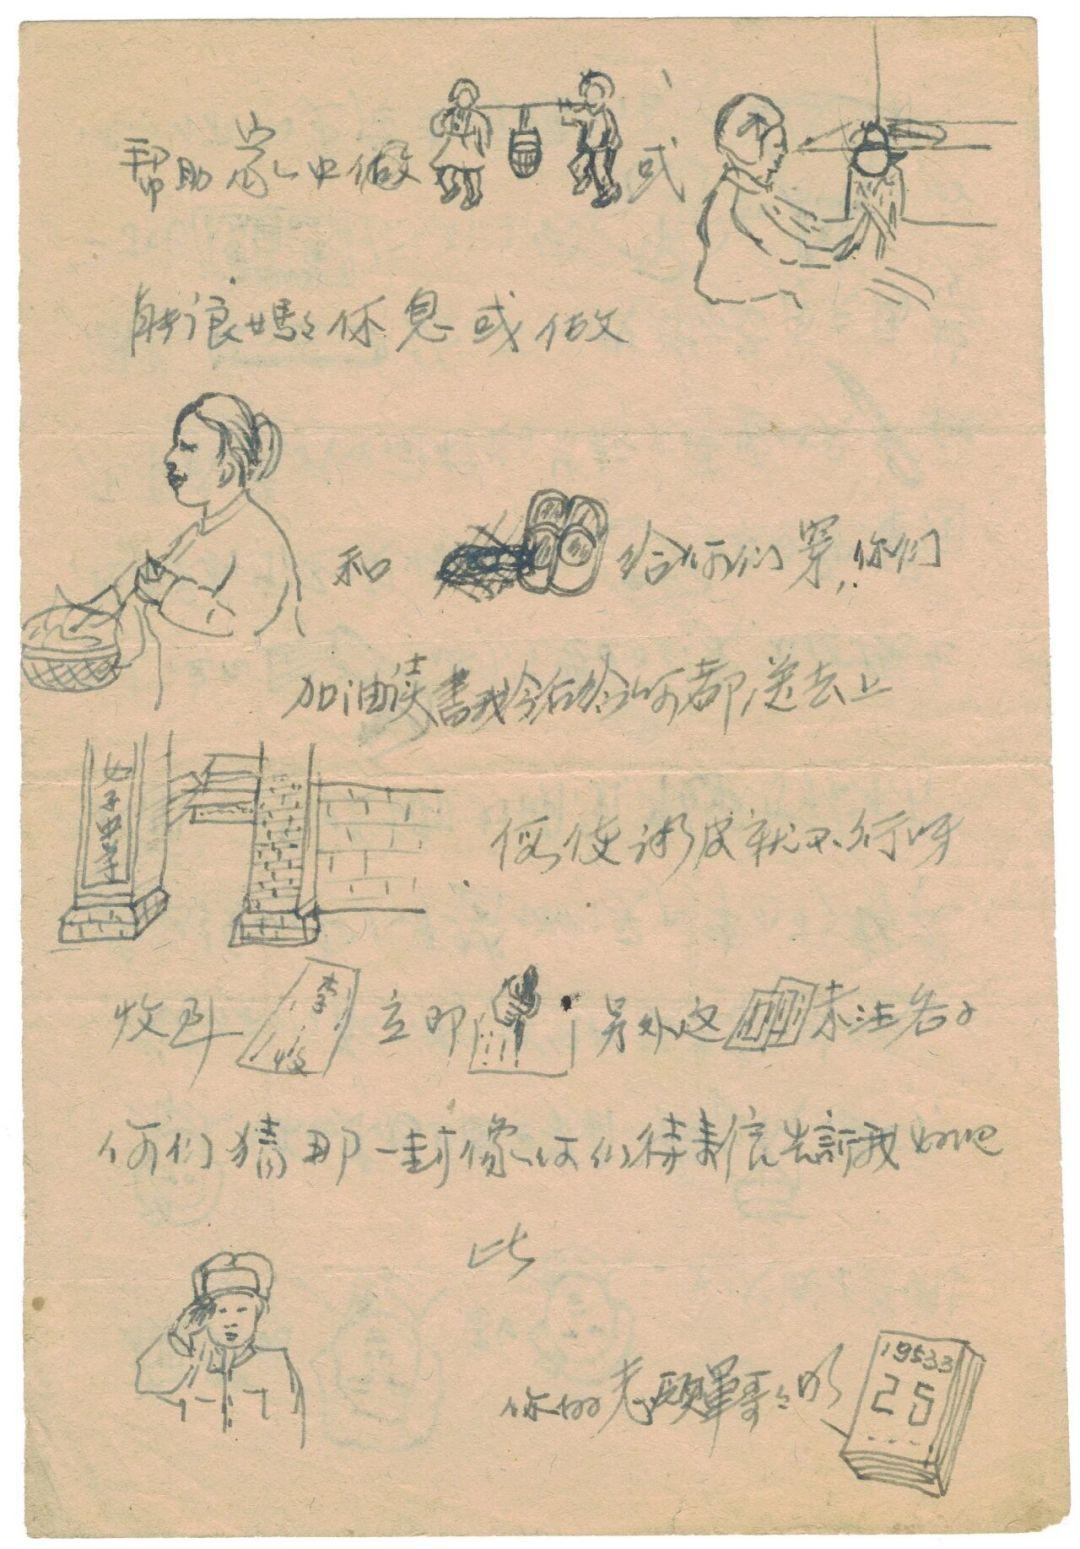 帮助家中做 或
能让妈妈休息或做
和 给你们穿,你们
加油读書我今后给你們都送去上
女子中学
假使调皮就不行呀
收到 李 收 立即 另外这 未注名子
你们猜那一封像你们待来信告訴我好吧
此
你的老頭軍哥哥
1953 3
25